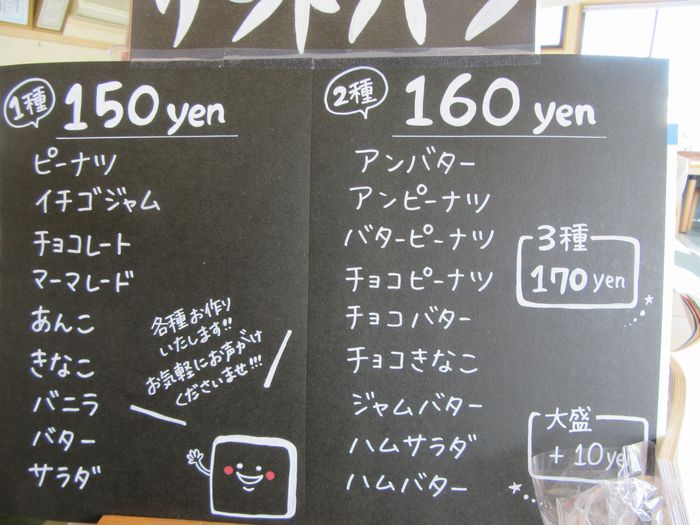 サンドパン
1種 150 yen
ピーナツ
イチゴジャム
チョコレート
マーマレード
あんこ
きなこ
バニラ
バター
サラダ
各種お作り
いたします!!
お気軽にお声がけ
くださいませ!!!
2種 160 yen
アンバター
アンピーナツ
バターピーナツ
チョコピーナツ
チョコバター
チョコきなこ
ジャムバター
ハムサラダ
ハムバター
3種
170 yen
大盛
+10yen